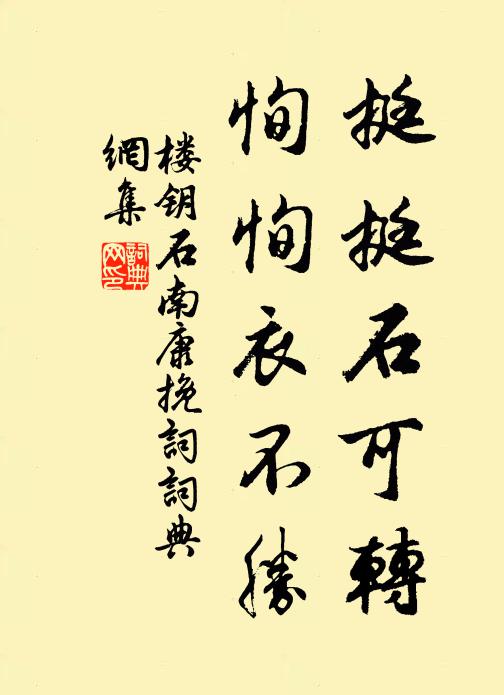 挺挺石可轉
恂恂衣不勝
楼钥石南康挽詞詞典
網集
詞典网印